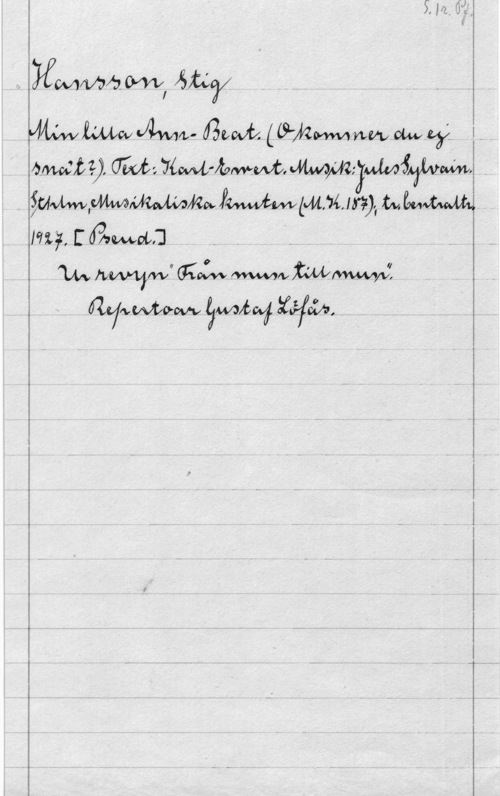 S. 1r. Pf.
Hansson, Stig
Min lilla Ann-Beat. (O kommer du ej
snart?). Text: Karl-Ewert. Musik: Jules Sylvain.
Sthlm, Musikaliska knuten (M.K. 187), tr. Centraltr.
1927. [Pseud.]
Ur revyn "Från mun till mun".
Repertoar Gustaf Löfås.